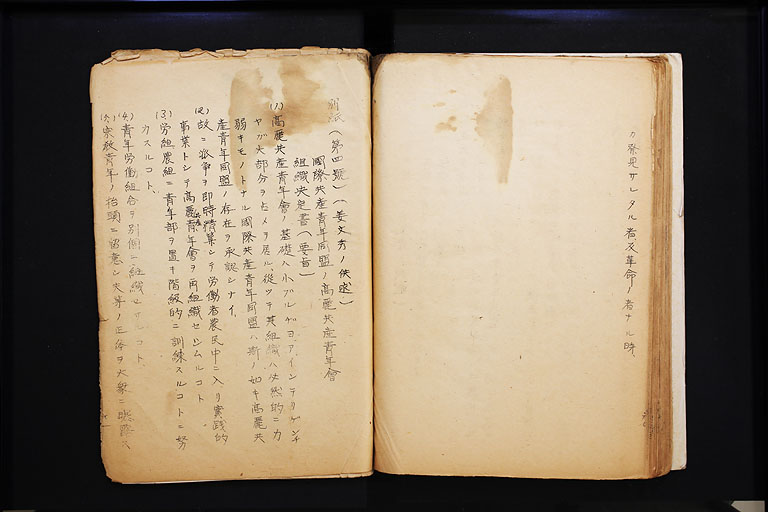 カ発見サレタル者及革命ノ者ナル時、
別紙(第四號)(姜文秀ノ供述)
國際共産青年同盟ノ高麗共産青年會
組織決定書(要旨)
(1)高麗共産青年會ノ基礎ハ小ブルヂョアインテリゲンチ
ヤガ大部分ヲ占メヲ居ル、從ツテ其組織ハ必然的ニカ
弱キモノトナル國際共産青年同盟ハ斯ノ如キ高麗共
産青年同盟ノ存在ヲ承認シナイ、
(2)故ニ派争ヲ即時精算シテ労働者農民中ニ入リ実践的
事業トシテ高麗青年會ヲ再組織セシムルコト
(3)労組農組ニ青年部ヲ置キ階級的ニ訓練スルコトニ努
力スルコト、
(4)青年労働組合ヲ別個ニ組織セサルコト、
(5)宗教青年ノ抬頭ニ留意シ夫等ノ正体ヲ大衆ニ暴露ス